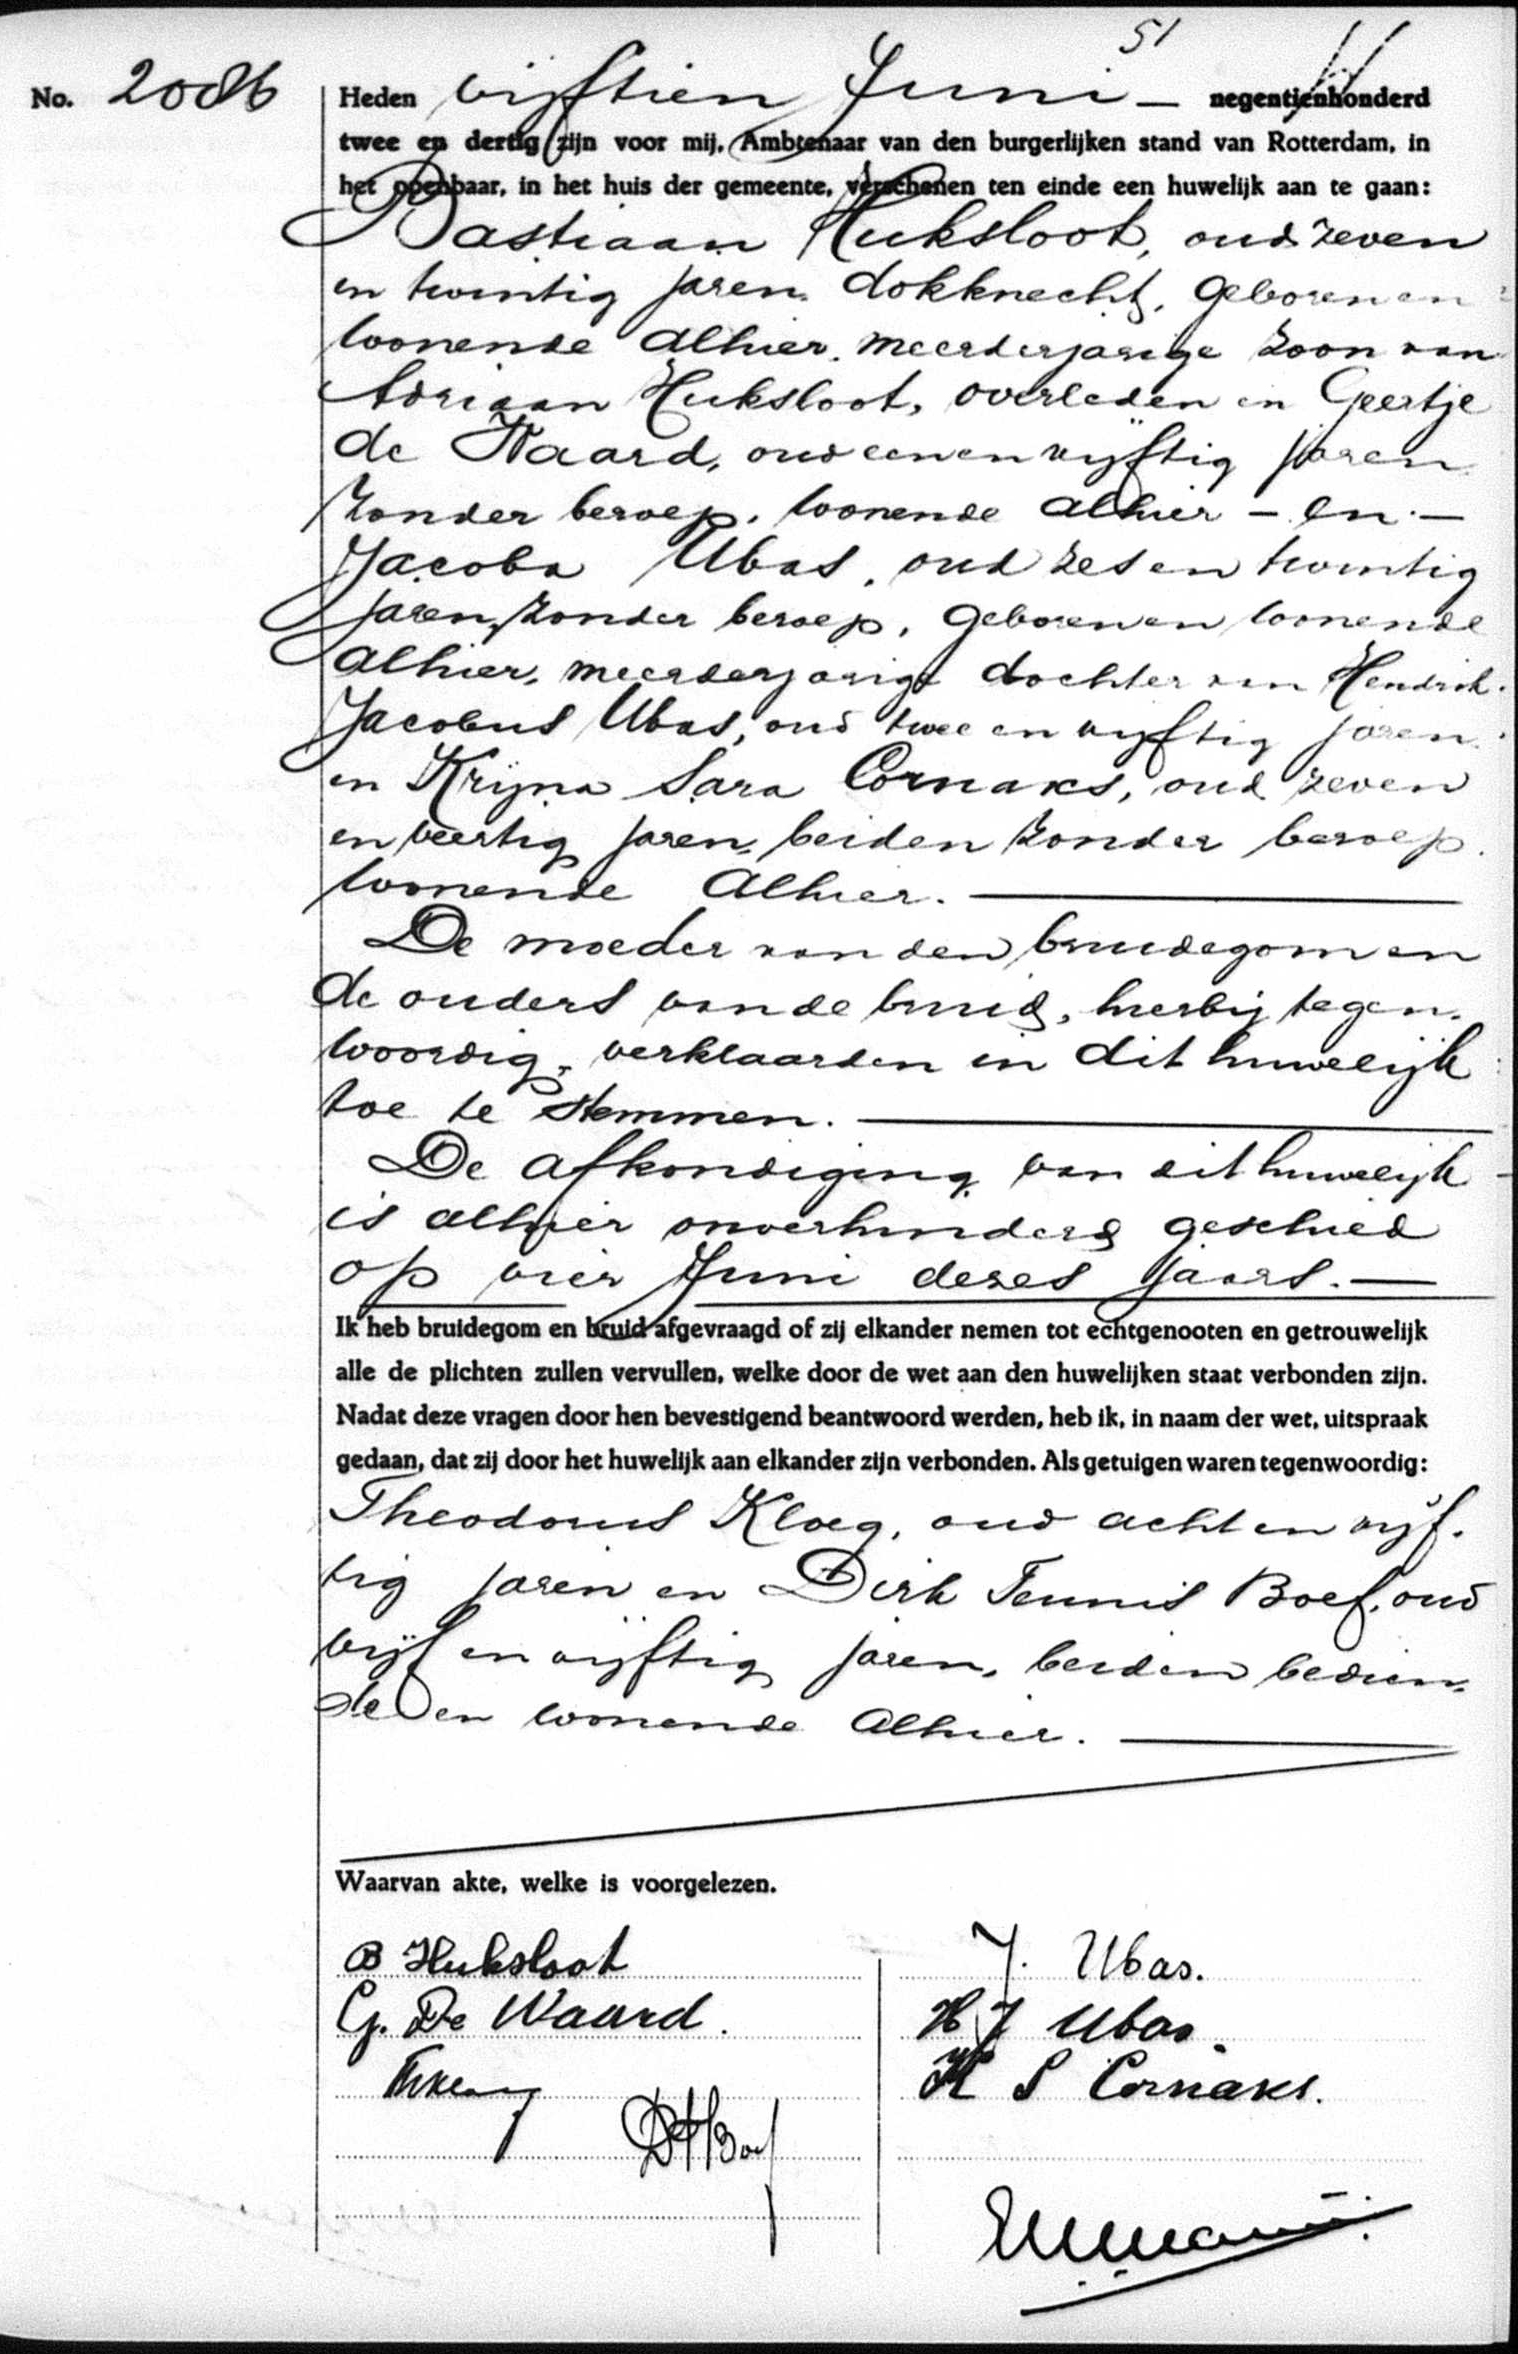 51
No. 2086 Heden vijftien Juni — negentienhonderd
twee en dertig zijn voor mij, Ambtenaar van den burgerlijken stand van Rotterdam, in
het openbaar, in het huis der gemeente, verschenen ten einde een huwelijk aan te gaan:
Bastiaan Huksloot, oud zeven
en twintig jaren, dokknecht, geboren en
wonende alhier, meerderjarige zoon van
Adriaan Huksloot, overleden en Geertje
de Waard, oud een en vijftig jaren
zonder beroep, wonende alhier — en —
Jacoba Ubas, oud zes en twintig
jaren, zonder beroep, geboren en wonende
alhier, meerderjarige dochter van Hendrik
Jacobus Ubas, oud twee en vijftig jaren
en Krijna Sara Cornaks, oud zeven
en veertig jaren, beiden zonder beroep
wonende alhier. —
De moeder van den bruidegom en
de ouders van de bruid, hierbij tegen-
woordig, verklaarden in dit huwelijk
toe te stemmen. —
De afkondiging van dit huwelijk
is alhier onverhinderd geschied
op vier Juni dezes jaars. —
Ik heb bruidegom en bruid afgevraagd of zij elkander nemen tot echtgenooten en getrouwelijk
alle de plichten zullen vervullen, welke door de wet aan den huwelijken staat verbonden zijn.
Nadat deze vragen door hen bevestigend beantwoord werden, heb ik, in naam der wet, uitspraak
gedaan, dat zij door het huwelijk aan elkander zijn verbonden. Als getuigen waren tegenwoordig:
Theodorus Kloeg, oud acht en vijf-
tig jaren en Dirk Teunis Boef, oud
vijf en vijftig jaren, beiden bedien-
de en wonende alhier. —
Waarvan akte, welke is voorgelezen.
B Huksloot
G. De Waard.
DTBoef
J. Ubas.
H J Ubas
K S Cornaks.